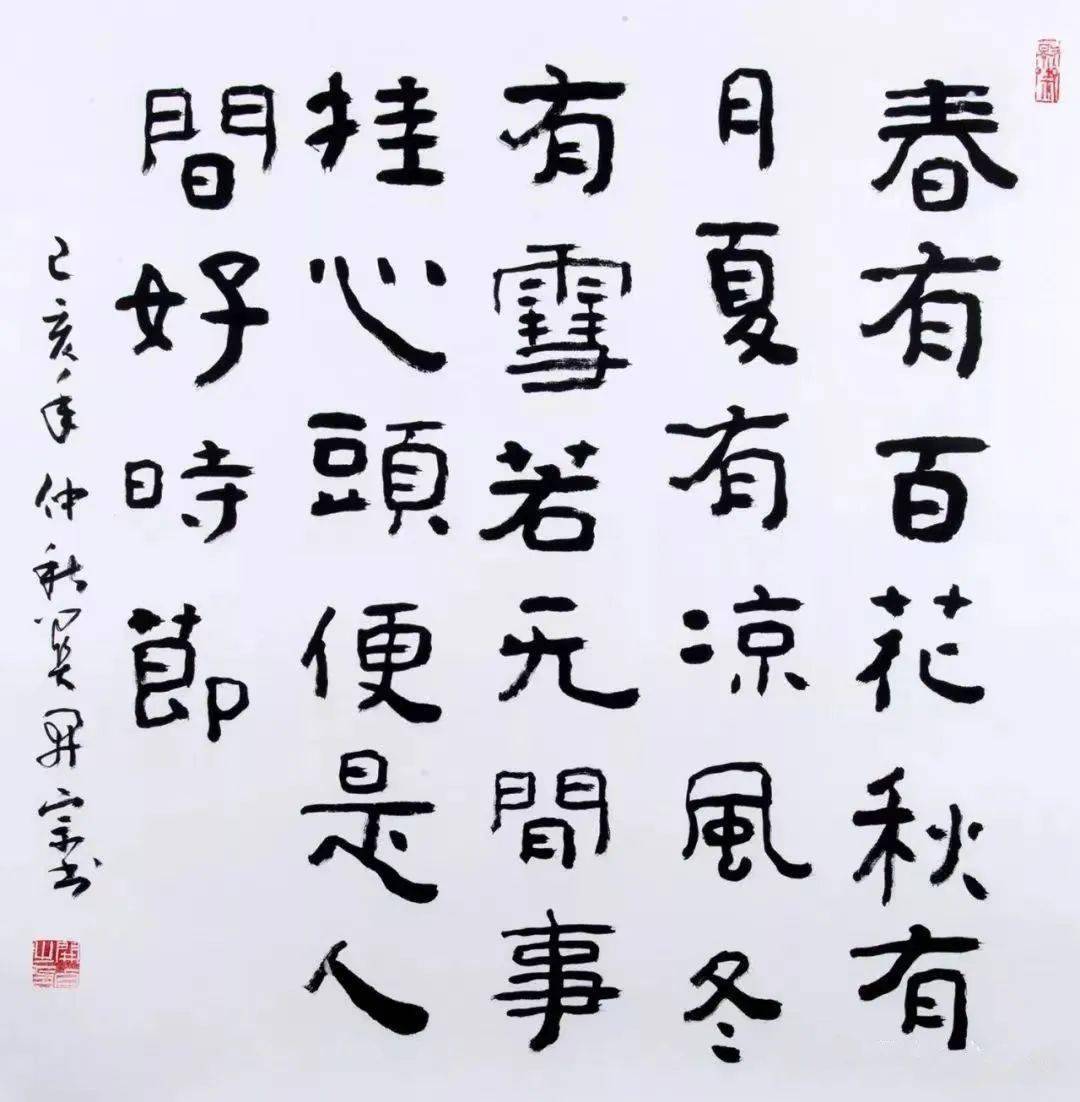 春有百花秋有
月夏有凉風冬
有雪若无閒事
挂心頭便是人
間好時節
己亥年仲秋宗书